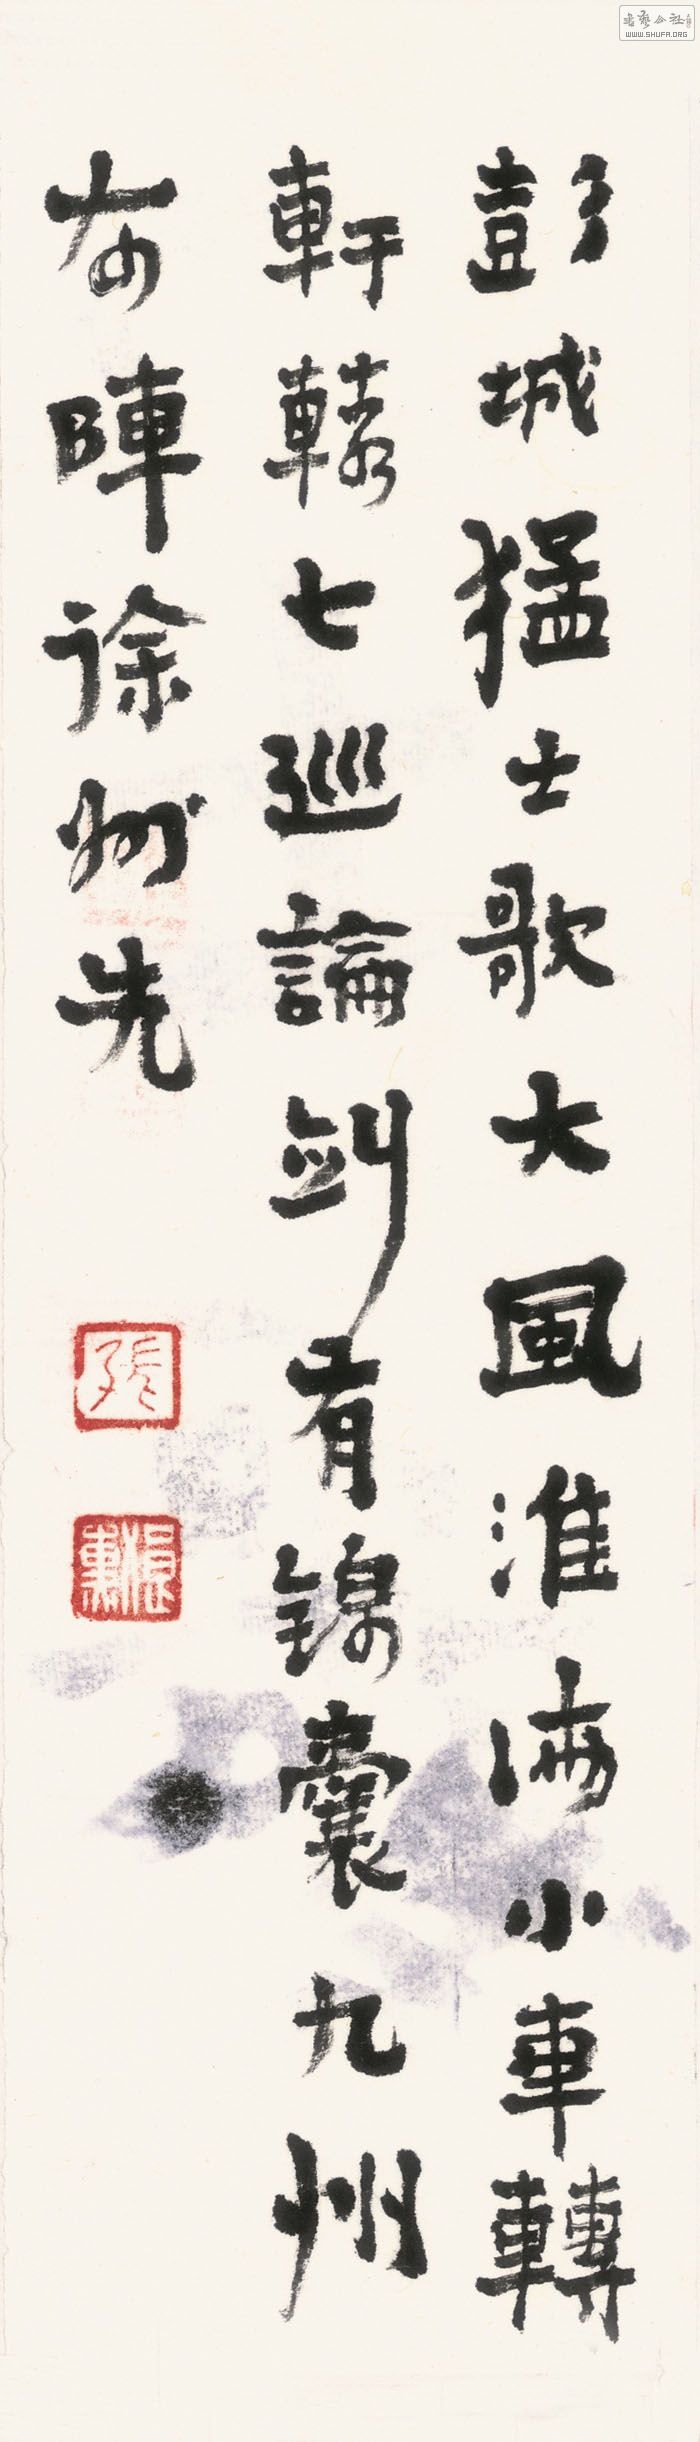 彭城猛士歌大風淮海小車轉
軒轅七巡論劍有錦囊九州
布陣徐州先
張
WWW.SHUFA.ORG